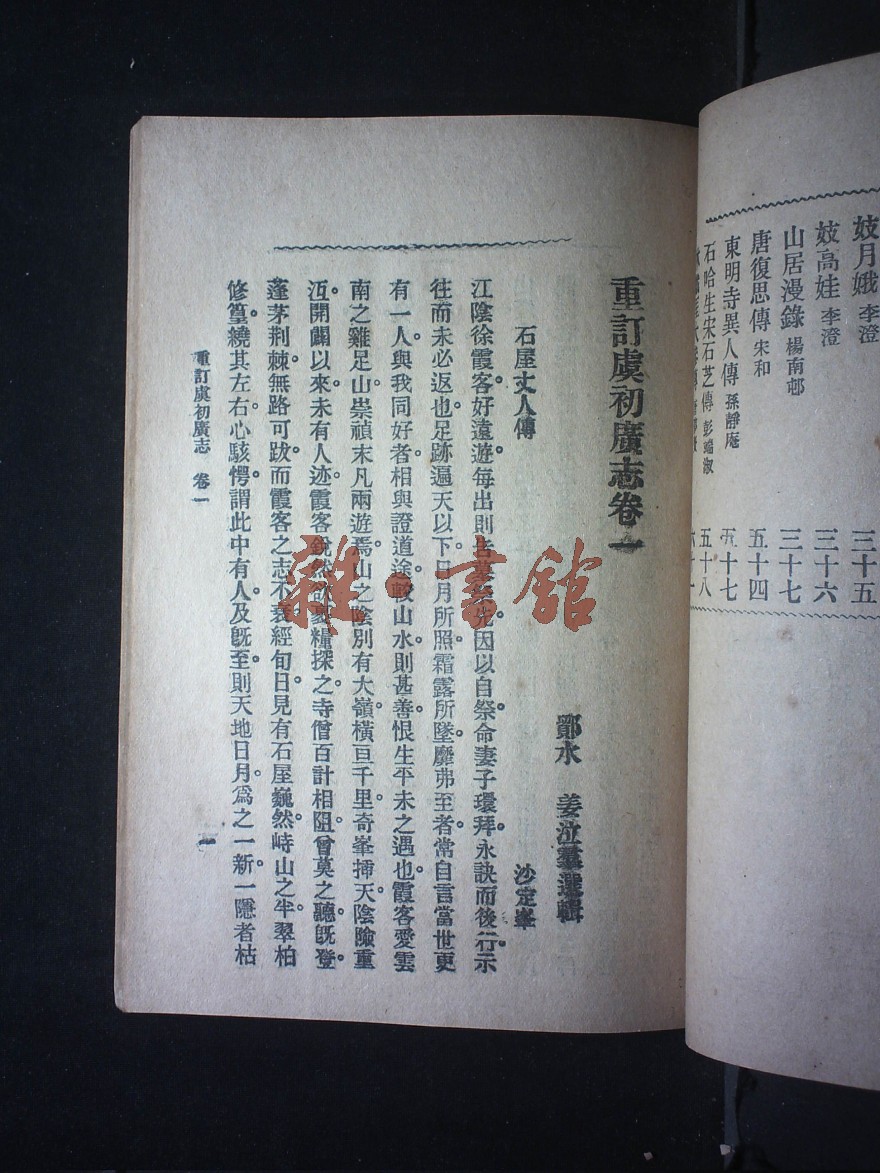 妓月娥 李澄 三十五
妓高娃 李澄 三十六
山居漫錄 楊南邨 三十七
唐復思傳 宋和 五十四
東明寺異人傳 孫靜庵 五十七
石哈生宋石芝傳 彭端淑 五十八
重訂虞初廣志卷一
鄮水 姜泣羣選輯
石屋丈人傳 沙定峯
江陰徐霞客好遠遊。每出則告墓祭先。因以自祭。命妻子環拜永訣而後行。示
往而未必返也。足跡遍天以下。日月所照霜露所墜靡弗至者。常自言當世更
有一人。與我同好者。相與證道途較山水則甚善。恨生平未之遇也。霞客愛雲
南之雞足山。崇禎末凡兩遊焉。山之陰別有大嶺橫亘千里。奇峯插天。陰險重
沍。開闢以來未有人迹。霞客銳然欲裹糧探之。寺僧百計相阻。曾莫之聽。既登
蓬茅荊棘。無路可跋。而霞客之志不衰。經旬日。見有石屋巍然峙山之半。翠柏
修篁繞其左右。心駭愕。謂此中有人。及既至則天地日月爲之一新。一隱者枯
重訂虞初廣志 卷一 一
雜·書館